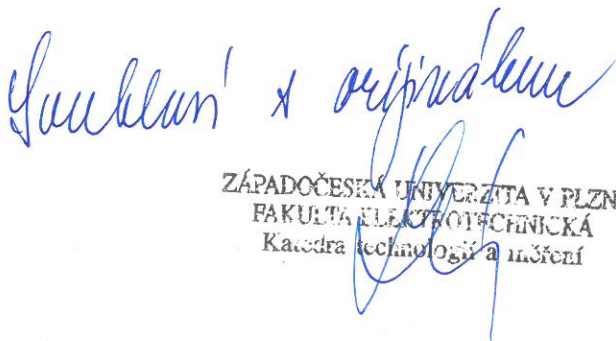 Souhlasí s originálem
ZÁPADOČESKÁ UNIVERZITA V PLZN
FAKULTA ELEKTROTECHNICKÁ
Katedra technologií a měření